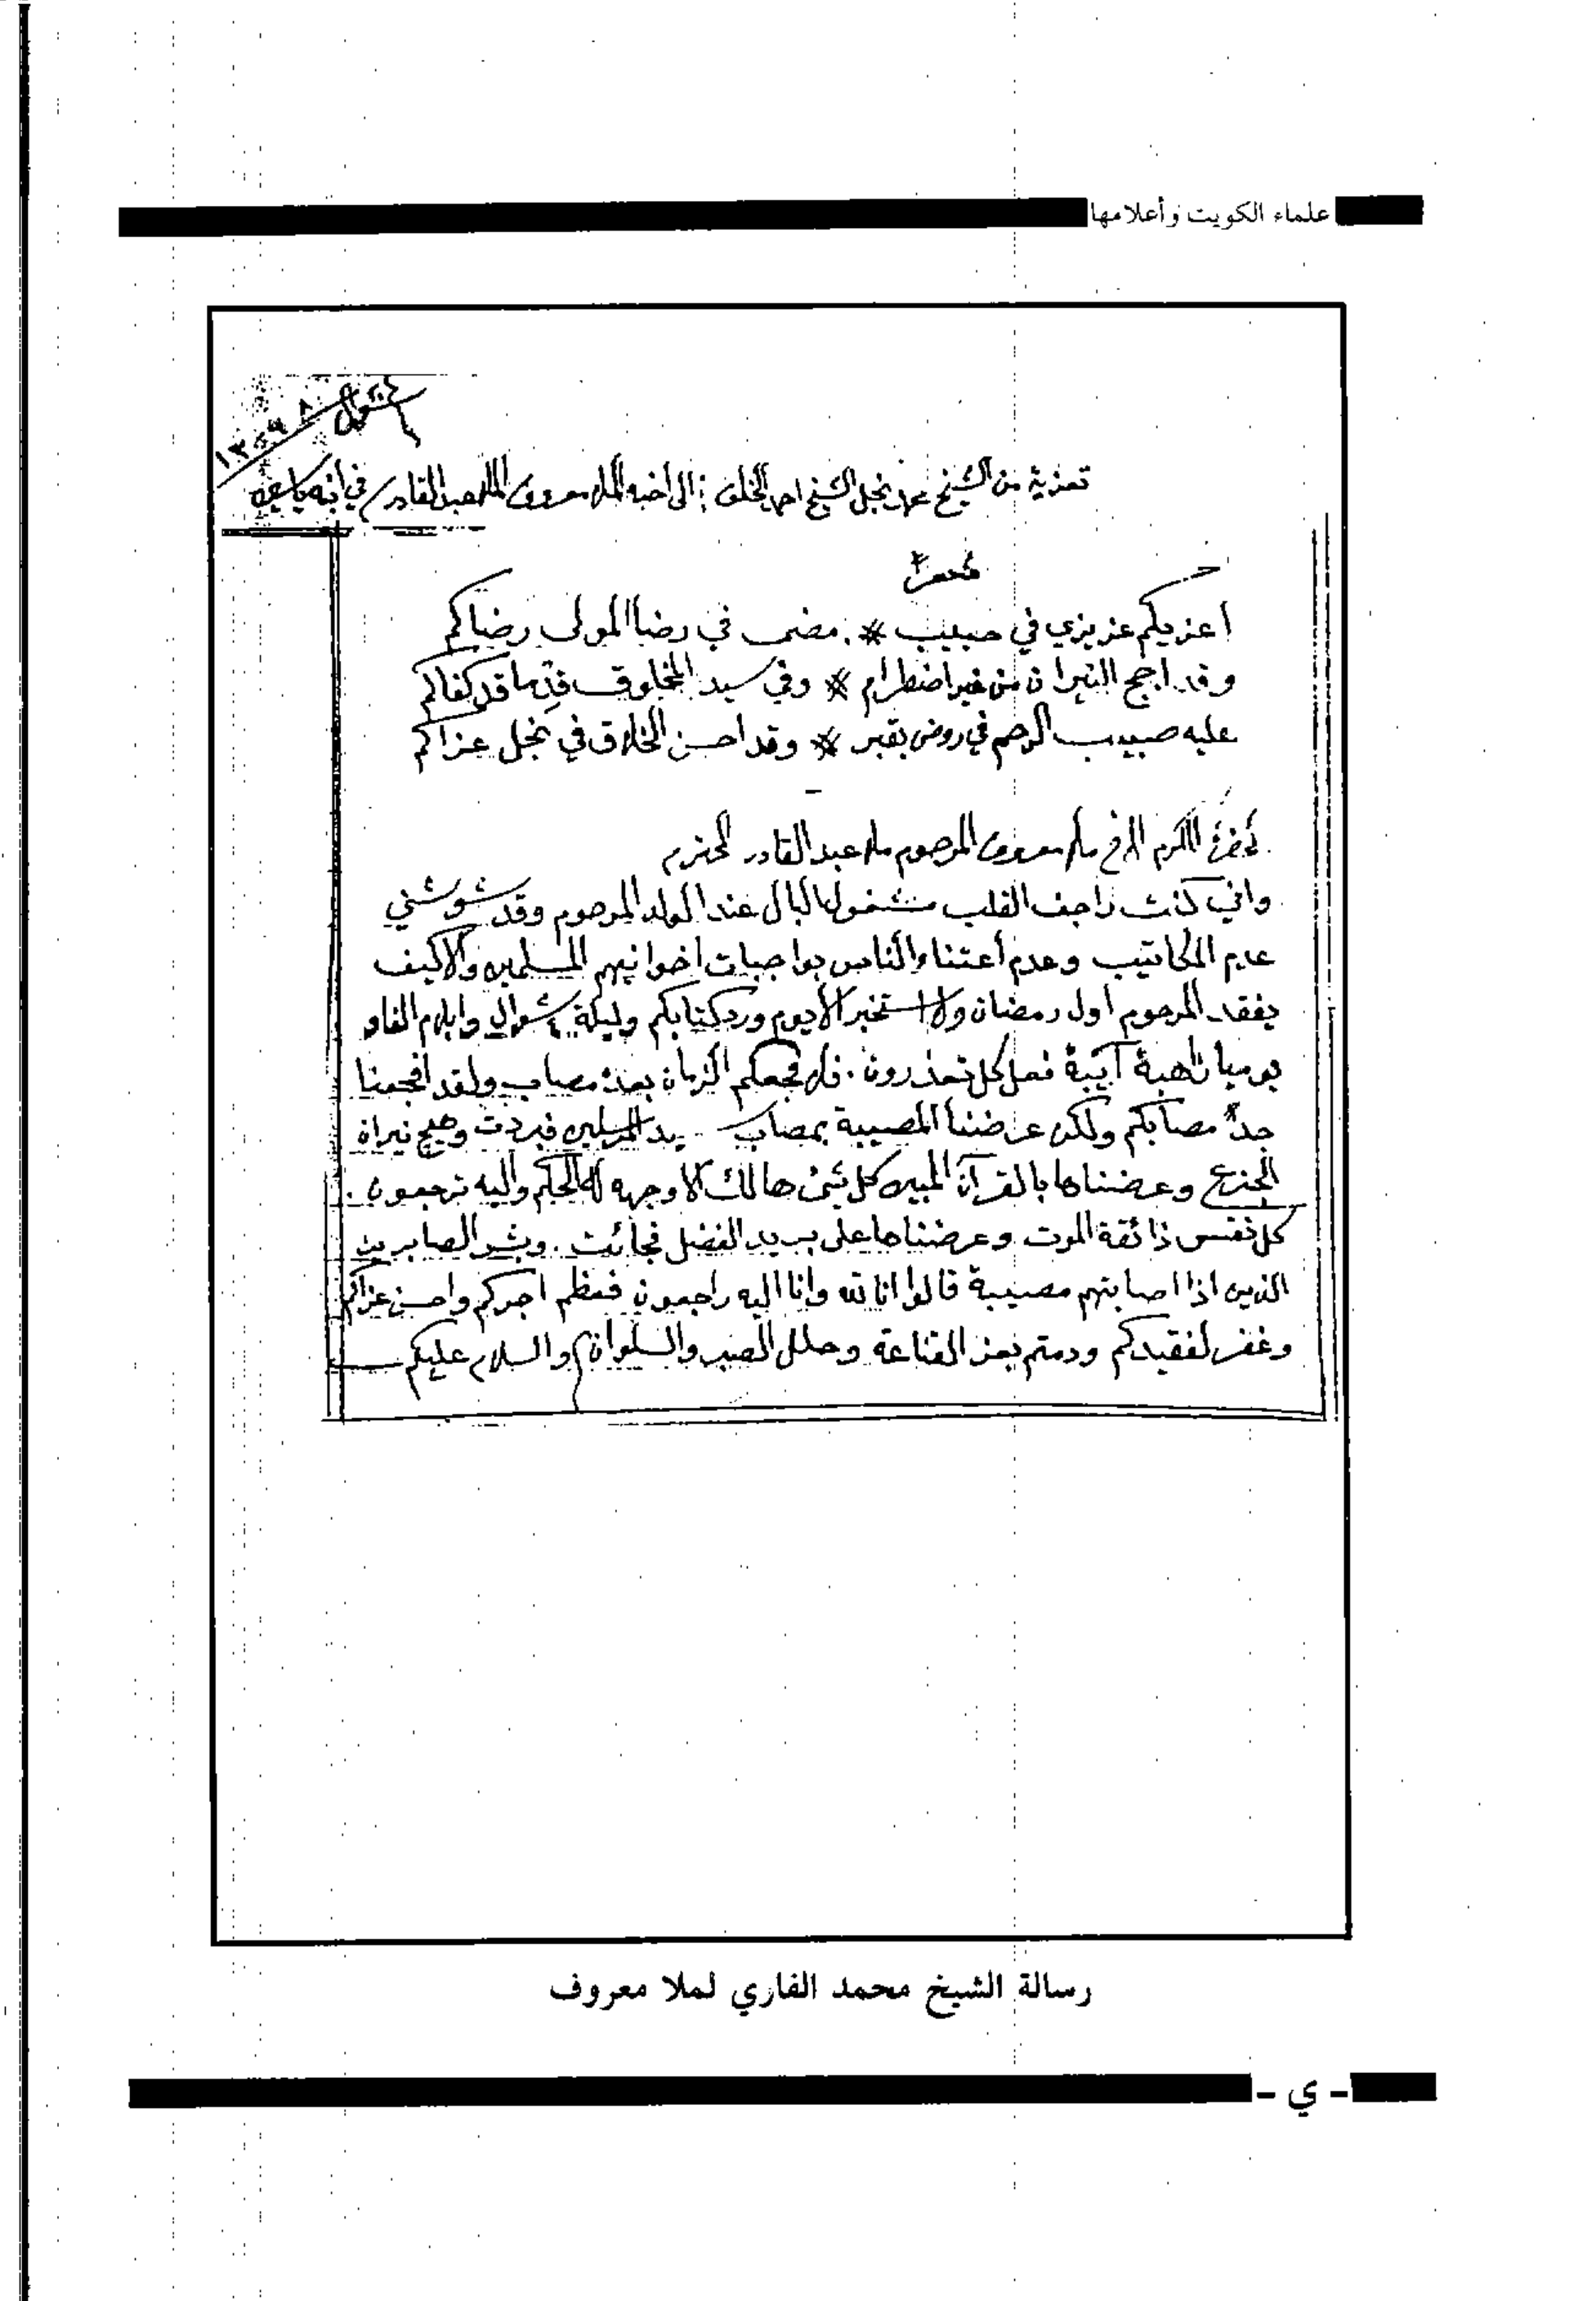 علماء الكويت وأعلامها
شوال
تعزية من الشيخ محمد نجل الشيخ احمد الى اخيه الملا معروف الملا عبدالقادر في ابنه ياسين
اعزيكم عزيزي في حبيب * مضى في رضا المولى رضاكم
وقد اجج النيران من غير اضطرام * وفي سيد المخلوق قدما قد كفاكم
عليه صبيب الرحم في روض بقبر * وقد احسن الخلاق في نجل عزاكم
المكرم الاخ ملا معروف المرحوم ملا عبدالقادر المحترم
واني كنت راجف القلب مشغول البال عند الولد المرحوم وقد شوشني
عدم المكاتيب وعدم اعتناء الناس بواجبات اخوانهم المسلمين والا كيف
يفقد المرحوم اول رمضان ولا استخبر الا يوم ورد كتابكم وليلة ٤ شوال
يوميا ذاهبة آيبة فعل كل تعذرون. فلا فجعكم الزمان بعده مصاب ولقد افجعنا
جدا مصابكم ولكن عرضنا المصيبة بمصاب سيد المرسلين فبردت وهيج نيران
الجزع وعرضناها بالقرآن المبين كل شيئ هالك الا وجهه له الحكم واليه ترجعون.
كل نفس ذائقة الموت وعرضناها على بريد الفضل فجائت. وبشر الصابرين
الذين اذا اصابتهم مصيبة قالوا انا لله وانا اليه راجعون فعظم اجركم واحسن عزاكم
وغفر لفقيدكم ودمتم بعز القناعة وحلل الصبر والسلوان والسلام عليكم
رسالة الشيخ محمد الفاري لملا معروف
- ي -